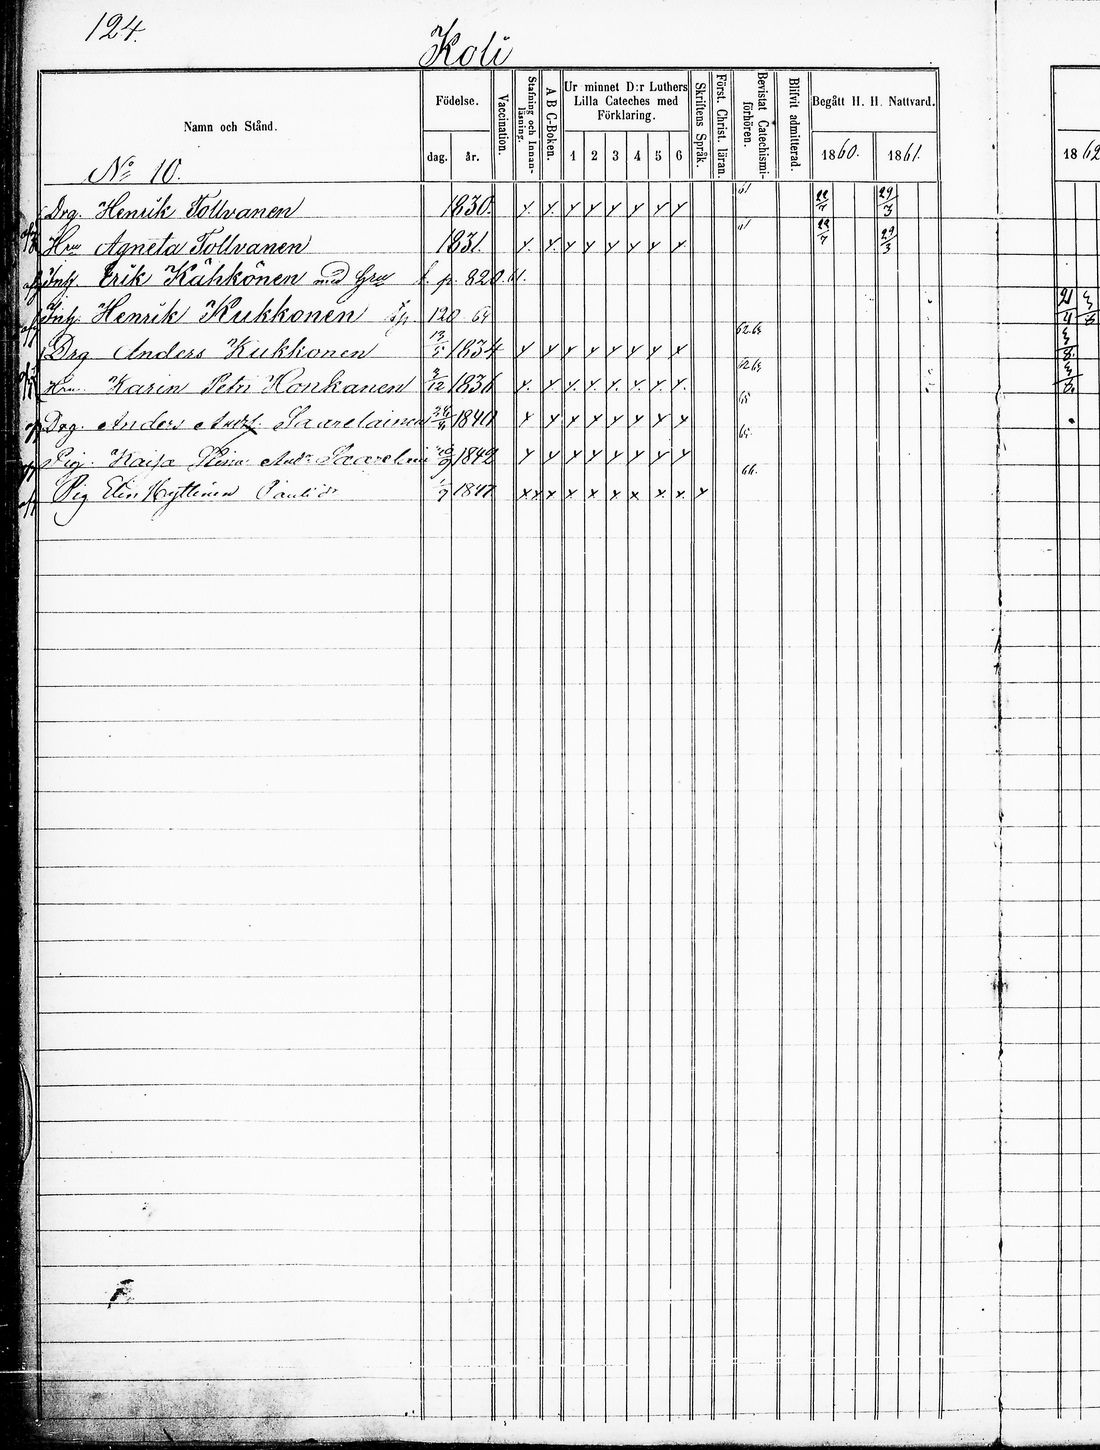 124.
Koli
Namn och Stånd.
Födelse.
dag. år.
Vaccination.
Stafning och Innanläsning.
A B C-Boken.
Ur minnet D:r Luthers Lilla Cateches med Förklaring.
1 2 3 4 5 6
Skriftens Språk.
Först. Christ. läran.
Bevistat Catechismiförhören.
Blifvit admitterad.
Begått H. H. Nattvard.
1860. 1861. 1862
No 10.
Drg. Henrik Tollvanen 1830. y. y. y y y y y y 61 22/7 29/3
Hru Agneta Tollvanen 1831. y. y. y y y y y y 61 22/7 29/3
Inh. Erik Kähkönen med Hru f. p. 820 61.
Inh. Henrik Kukkonen 120 64
Drg Anders Kukkonen 13/5 1834 y y y y y y y x 62.64
Hru. Karin Petri Honkanen 3/12 1836 y. y. y. y. y. y. y. y. 62 64
Drg. Anders Andr. Saarelainen 1840 y y y y y y y y 65
Pig. Kaisa Andr. 1842 y y y y y y y y 65.
Pig Elin Hyttinen 1/7 1847 x x x x x x x x x y 66.